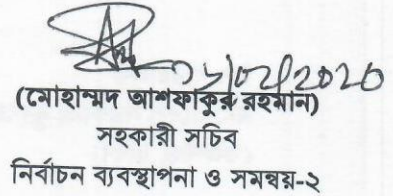 ০২/০১/২০২০
(মোহাম্মদ আশফাকুর রহমান)
সহকারী সচিব
নির্বাচন ব্যবস্থাপনা ও সমন্বয়-২